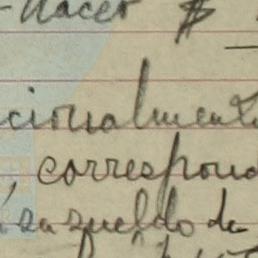 -nacer $
cionalmente
, correspond
su sueldo de